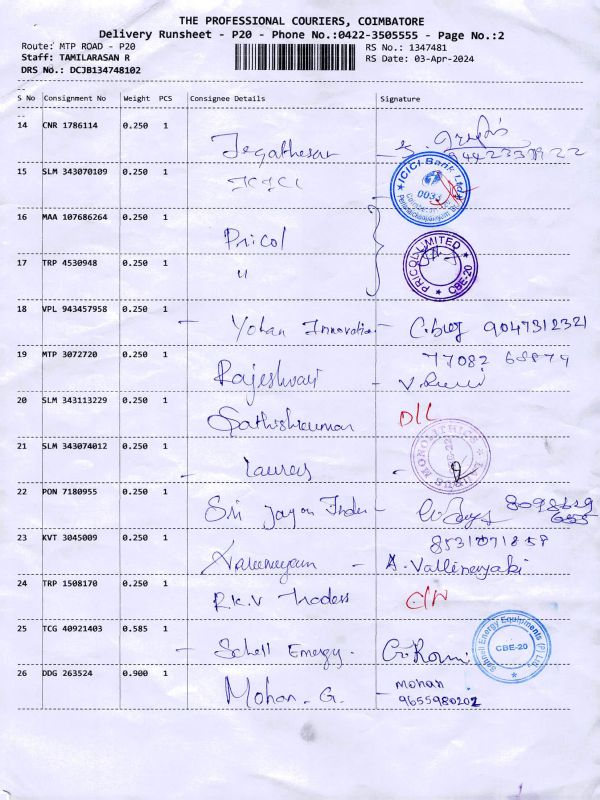 THE PROFESSIONAL COURIERS, COIMBATORE
Delivery Runsheet - P20 - Phone No.:0422-3505555 - Page No.:2
Route: MTP ROAD - P20 RS No.: 1347481
Staff: TAMILARASAN R RS Date: 03-Apr-2024
DRS No.: DCJB134748102
S No Consignment No Weight PCS Consignee Details Signature
14 CNR 1786114 0.250 1
Jegathesan
15 SLM 343070109 0.250 1
ICICI ICICI Bank Ltd
16 MAA 107686264 0.250 1
Pricol PRICOL LIMITED CBE-20
17 TRP 4530948 0.250 1
"
18 VPL 943457958 0.250 1
Yohan Innovation 9047312321
19 MTP 3072720 0.250 1 77082 68874
Rajeshwari
20 SLM 343113229 0.250 1
Sathishkumar DLL
21 SLM 343074012 0.250 1
22 PON 7180955 0.250 1
Sri 8098629
655
23 KVT 3045009 0.250 1 8531071858
A. Vallinayaki
24 TRP 1508170 0.250 1
R.K.V Traders
25 TCG 40921403 0.585 1
Schell Energy. Schnell Energy Equipments (P) Ltd. CBE-20
26 DDG 263524 0.900 1
Mohan. G. Mohan
9655980202